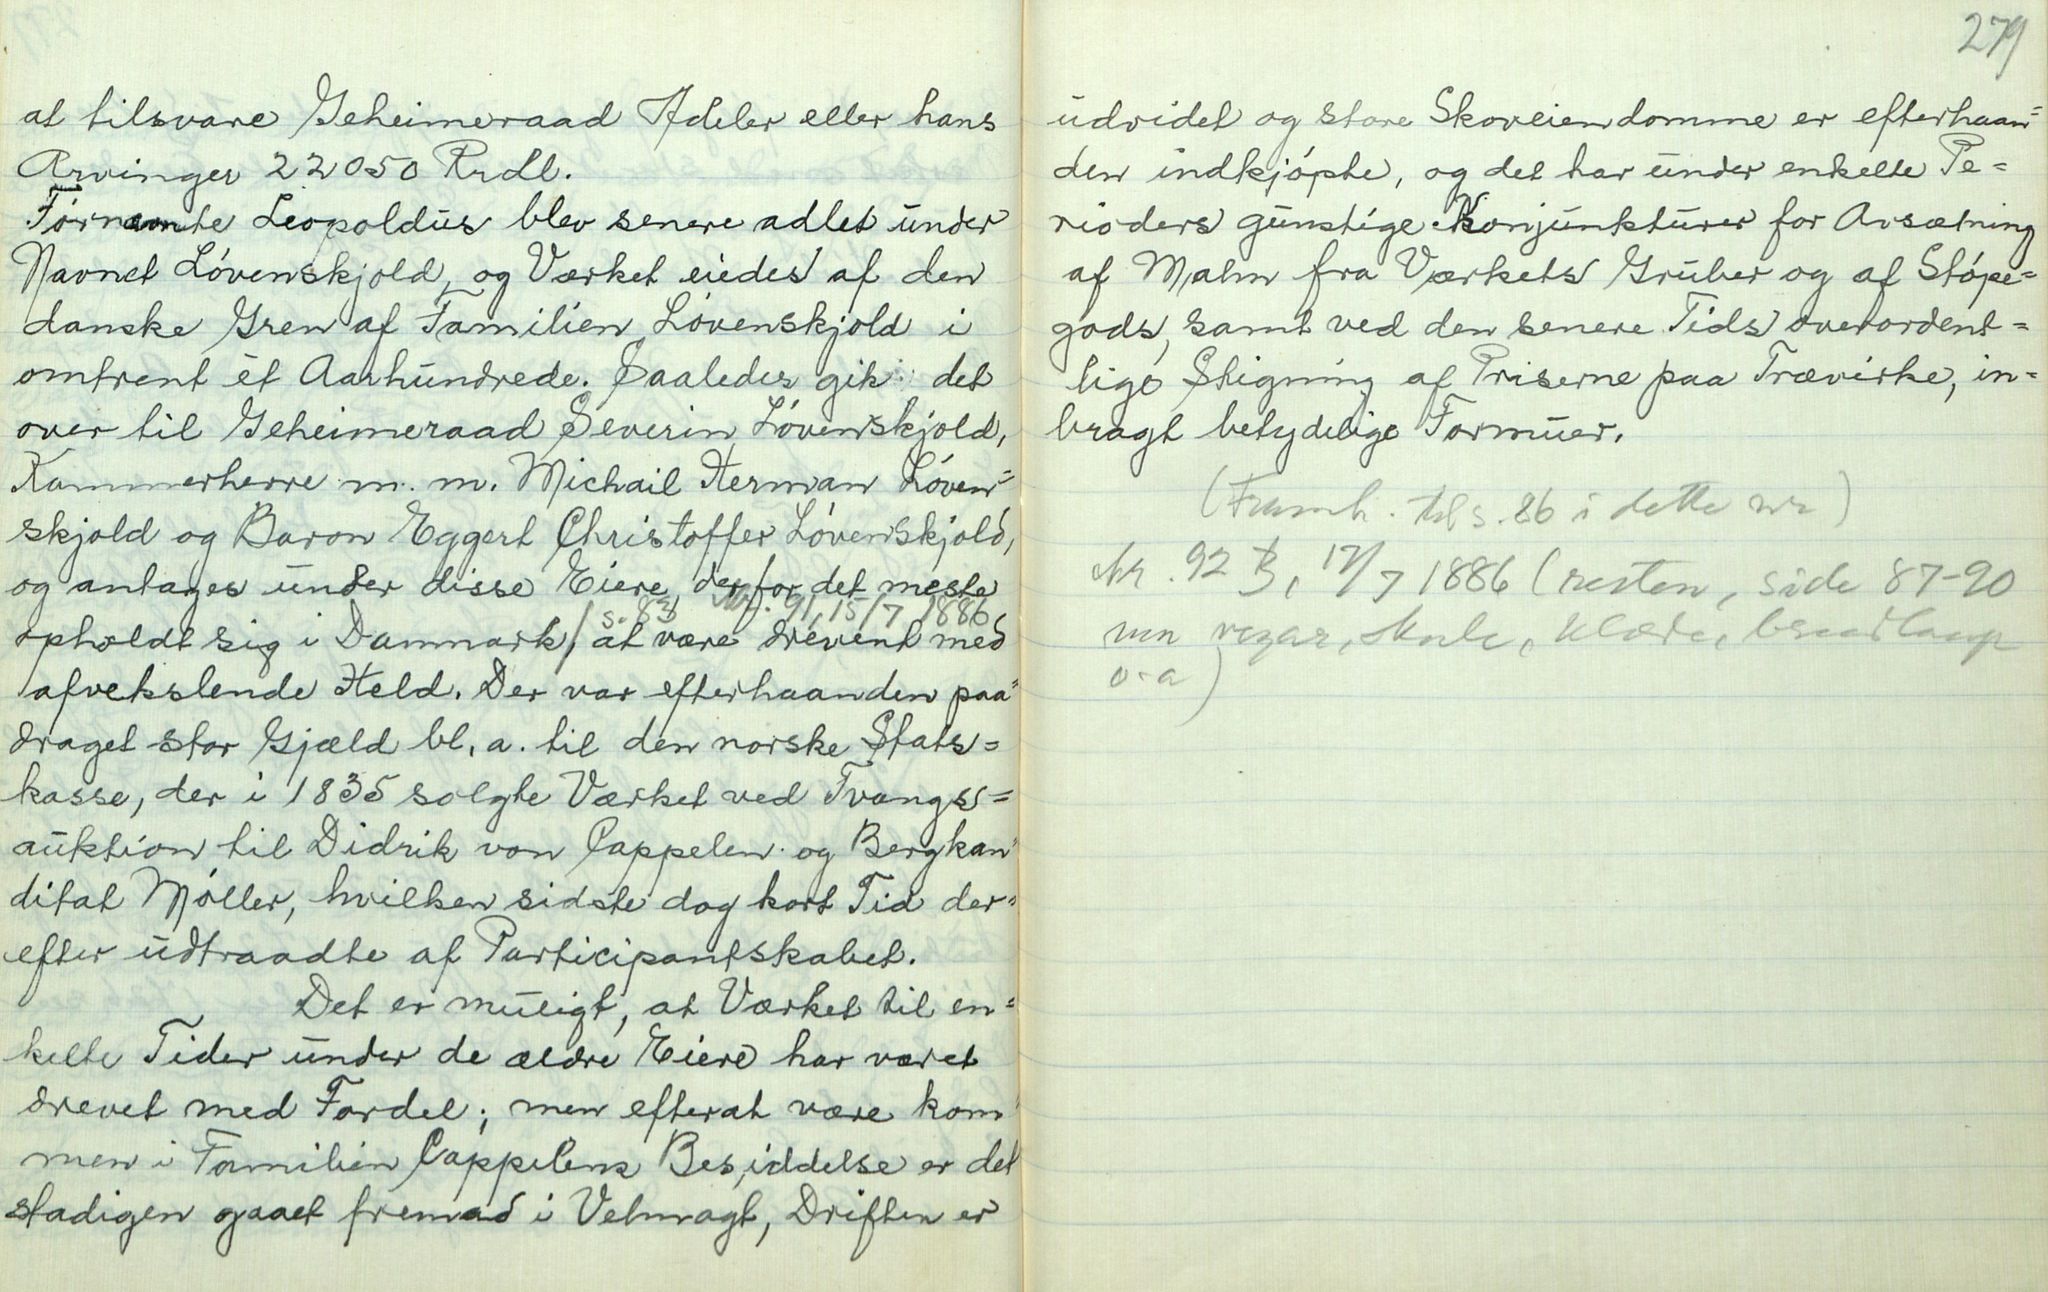 at tilsvare Geheimeraad Adeler eller hans
Arvinger 22050 Rrdl.
Førnævnte Leopoldus blev senere adlet under
Navnet Løvenskjold, og Værket eiedes af den
danske Gren af Familien Løvenskjold i
omtrent ét Aarhundrede. Saaledes gik det
over til Geheimeraad Severin Løvenskjold,
Kammerherre m. m. Michail Herman Løven=
skjold og Baron Eggert Christoffer Løvenskjold,
og antages under disse Eiere, der for det meste
s. 83 Nr. 91, 15/7 1886
opholdt sig i Danmark, / at være drevent med
afvekslende Held. Der var efterhaanden paa=
draget stor Gjæld bl. a. til den norske Stats=
kasse, der i 1835 solgte Værket ved Tvangs=
auktion til Didrik von Cappelen og Bergkan=
ditat Møller, hvilken sidste dog kort Tid der=
efter udtraadte af Participantskabet.
Det er muligt, at Værket til en=
kelte Tider under de ældre Eiere har været
drevet med Fordel; men efterat være kom=
men i Familien Cappelens Besiddelse er det
stadigen gaaet fremad i Velmagt, Driften er
279
udvidet og store Skoveiendomme er efterhaan=
den indkjøpte, og det har under enkelte Pe=
rioders gunstige Konjunkturer for Avsætning
af Malm fra Værkets Gruber og af Støpe=
gods, samt ved den senere Tids overordent=
lige Stigning af Priserne paa Trævirke, in=
bragt betydelige Formuer.
(Framh. til s. 86 i dette nr)
Nr. 92 B, 17/7 1886 (resten, side 87-90
um vegar, skule, klæde, brudlaup
o.a)